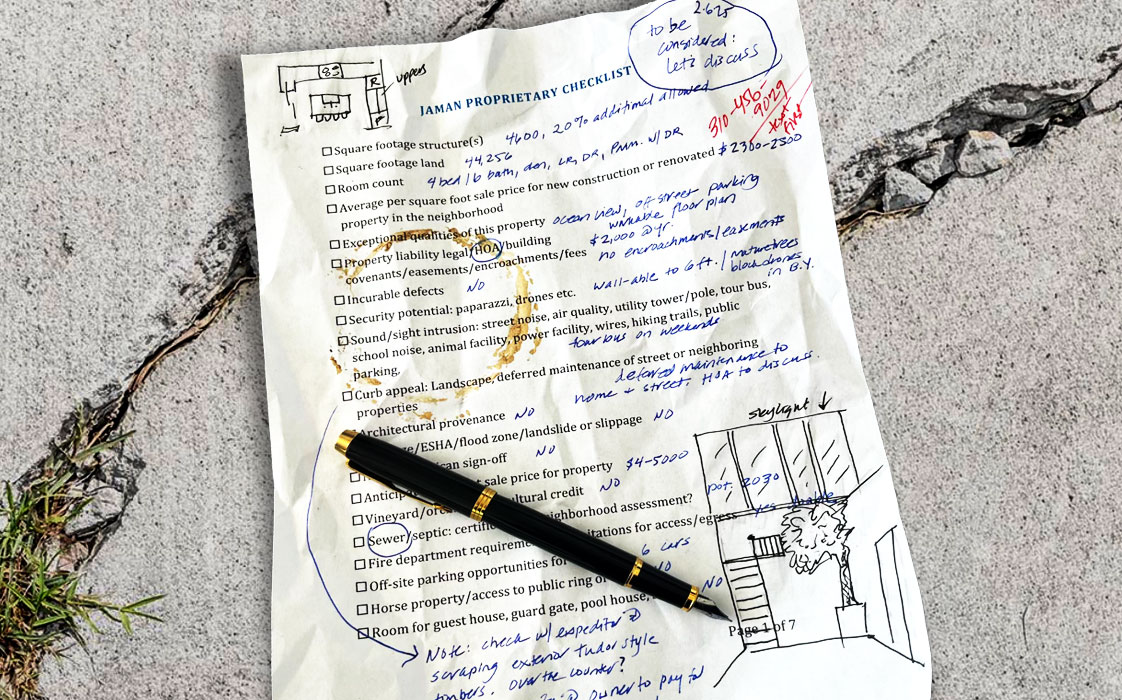 2.625
to be
considered:
let's discuss
uppers
R
JAMAN PROPRIETARY CHECKLIST
310-456-
9029
text
first
Square footage structure(s) 4600, 20% additional allowed
Square footage land 44,256
Room count 4 bed/6 bath, den, LR, DR, Prim. w/ DR
Average per square foot sale price for new construction or renovated $2300-2500
property in the neighborhood
Exceptional qualities of this property ocean view, off street parking
walkable floor plan
Property liability legal/HOA/building $2,000 @ yr.
covenants/easements/encroachments/fees no encroachments/easements
Incurable defects NO
Security potential: paparazzi, drones etc. wall-able to 6 ft. / mature trees
block drones
in B.Y.
Sound/sight intrusion: street noise, air quality, utility tower/pole, tour bus,
school noise, animal facility, power facility, wires, hiking trails, public
parking, tour bus on weekends
Curb appeal: Landscape, deferred maintenance of street or neighboring
properties deferred maintenance to
home + street. HOA to discuss.
Architectural provenance NO
/ESHA/flood zone/landslide or slippage NO
sign-off NO
sale price for property $4-5000
Anticip
Vineyard/ cultural credit NO
Sewer/septic: certifi neighborhood assessment? pot. 2030
Fire department requirem itations for access/egress yes
Off-site parking opportunities for 6 cars
Horse property/access to public ring or NO
Room for guest house, guard gate, pool house, NO
skylight
Page 1 of 7
Note: check w/ expeditor
scraping exterior tudor style
timbers. over the counter?
owner to pay